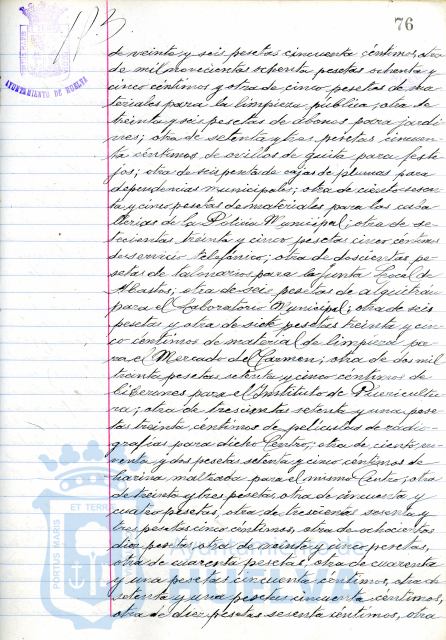 76
AYUNTAMIENTO DE HUELVA
de veinte y seis pesetas cincuenta céntimos, otra
de mil novecientas ochenta pesetas ochenta y
cinco céntimos y otra de cinco pesetas de ma
teriales para la limpieza pública; otra de
treinta y seis pesetas de abonos para jardi
nes; otra de setenta y tres pesetas cincuen
ta céntimos de ovillos de guita para feste
jos; otra de seis pesetas de cajas de plumas para
dependencias municipales; otra de ciento sesen
ta y cinco pesetas de materiales para las caba
llerias de la Policia Municipal; otra de se
tecientas treinta y cinco pesetas cinco céntimos
de servicio telefónico; otra de doscientas pe
setas de talonarios para la Junta Local de
Abastos; otra de seis pesetas de alquitrán
para el Laboratorio Municipal; otra de seis
pesetas y otra de siete pesetas treinta y cin
co céntimos de material de limpieza pa
ra el Mercado del Carmen; otra de dos mil
treinta pesetas setenta y cinco céntimos de
biberones para el Instituto de Puericultu
ra; otra de trescientas setenta y una pese
tas treinta céntimos de películas de radio
grafías para dicho Centro; otra de ciento no
venta y dos pesetas setenta y cinco céntimos de
harina malteada para el mismo Centro; otra
de treinta y tres pesetas, otra de cincuenta y
cuatro pesetas, otra de trescientas sesenta y
tres pesetas cinco céntimos, otra de ochocientas
diez pesetas, otra de veinte y cinco pesetas,
otra de cuarenta pesetas, otra de cuarenta
y una pesetas cincuenta céntimos, otra de
setenta y una pesetas cincuenta céntimos,
otra de diez pesetas sesenta céntimos, otra
PORTUS MARIS
ET TERRAE
Ayuntamiento de
HUELVA